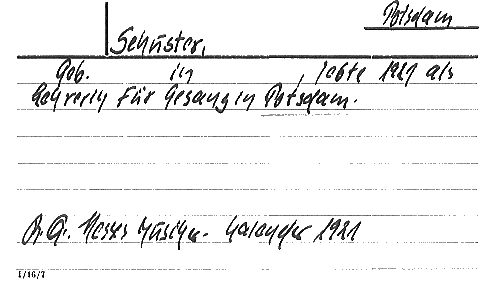 Potsdam
Schuster,
Geb. in , lebte 1921 als
Lehrerin für Gesang in Potsdam.
Hesses Musiker-Kalender 1921
1/16/7